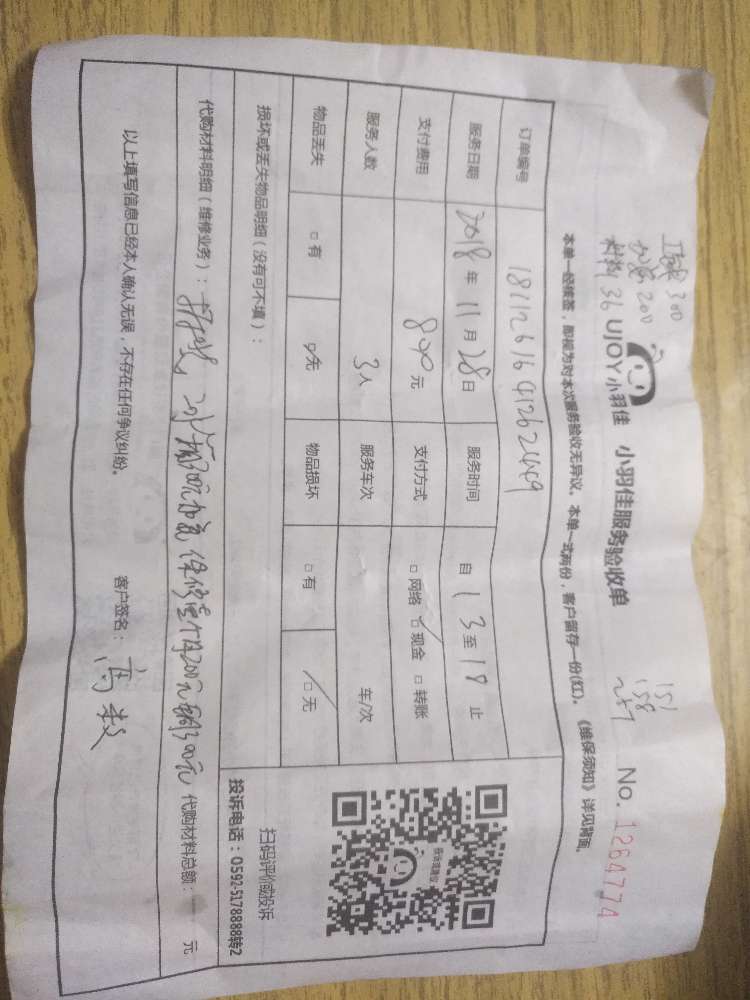 300
200
材料 36
151
158
257
UJOY小羽佳 小羽佳服务验收单 No. 1264774
本单一经核签,即视为对本次服务验收无异议。本单一式两份,客户留存一份(红)。《维保须知》详见背面。
订单编号 18112616412624449
服务日期 2018 年 11 月 28 日 服务时间 自 13 至 18 止
支付费用 元 支付方式 □ 网络 □ 现金 □ 转账
服务人数 3 人 服务车次 车/次
物品丢失 □ 有 □ 无 物品损坏 □ 有 □ 无
损坏或丢失物品明细(没有可不填):
代购材料明细(维修业务): 代购材料总额: 元
以上填写信息已经本人确认无误,不存在任何争议纠纷。 客户签名:
投诉或建议
扫码评价或投诉
投诉电话:0592-5178888转2